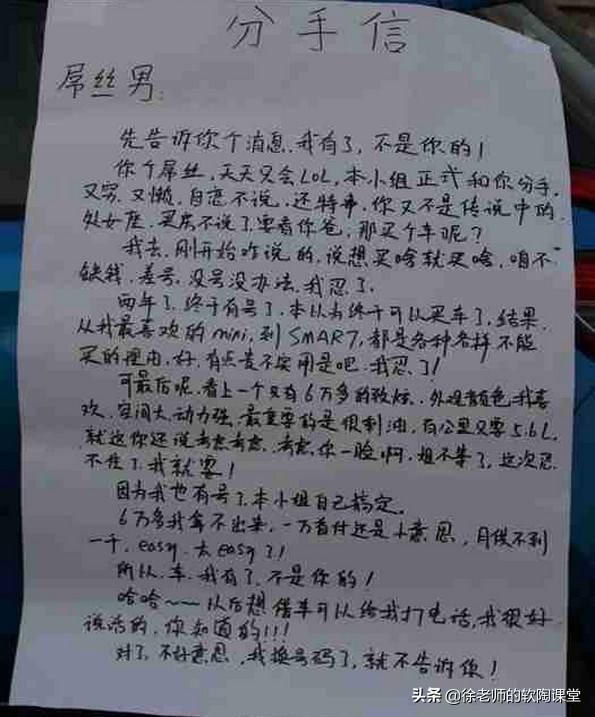 分手信
屌丝男:
先告诉你个消息,我有了,不是你的!
你个屌丝,天天只会LOL,本小姐正式和你分手,
又穷、又懒、自恋不说,还特事,你又不是传说中的
处女座,买房不说了要看你爸,那买个车呢?
我去,刚开始咋说的,说想买啥就买啥,咱不
缺钱,差号,没号没办法,我忍了.
两年了,终于有号了,本以为终于可以买车了,结果
从我最喜欢的mini,到SMART,都是各种各样不能
买的理由,好,有点贵不实用是吧,我忍了!
可最后呢,看上一个只有6万多的致炫,外观颜色我喜
欢,空间大,动力强,最重要的是很剩油,百公里只要5.6L,
就这你还说考虑考虑,考虑你一脸啊,姐不等了,这次忍
不住了,我就要!
因为我也有号了,本小姐自己搞定。
6万多我拿不出来,一万首付还是小意思,月供不到
一千,easy,太easy了!
所以,车,我有了,不是你的!
哈哈~~以后想借车可以给我打电话,我很好
说话的,你知道的!!!
对了,不好意思,我换号码了,就不告诉你!
头条@徐老师的软陶课堂